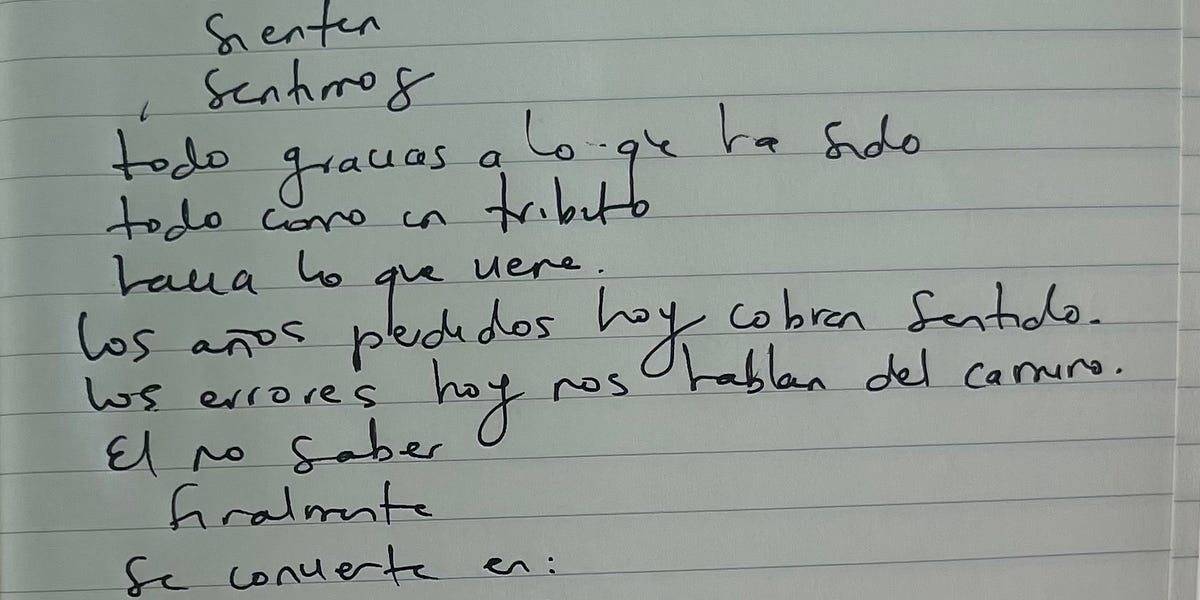 Sienten
Sentimos
todo gracias a lo que ha sido
todo como un tributo
hacia lo que viene.
los años perdidos hoy cobran sentido.
los errores hoy nos hablan del camino.
El no saber
finalmente
se convierte en: